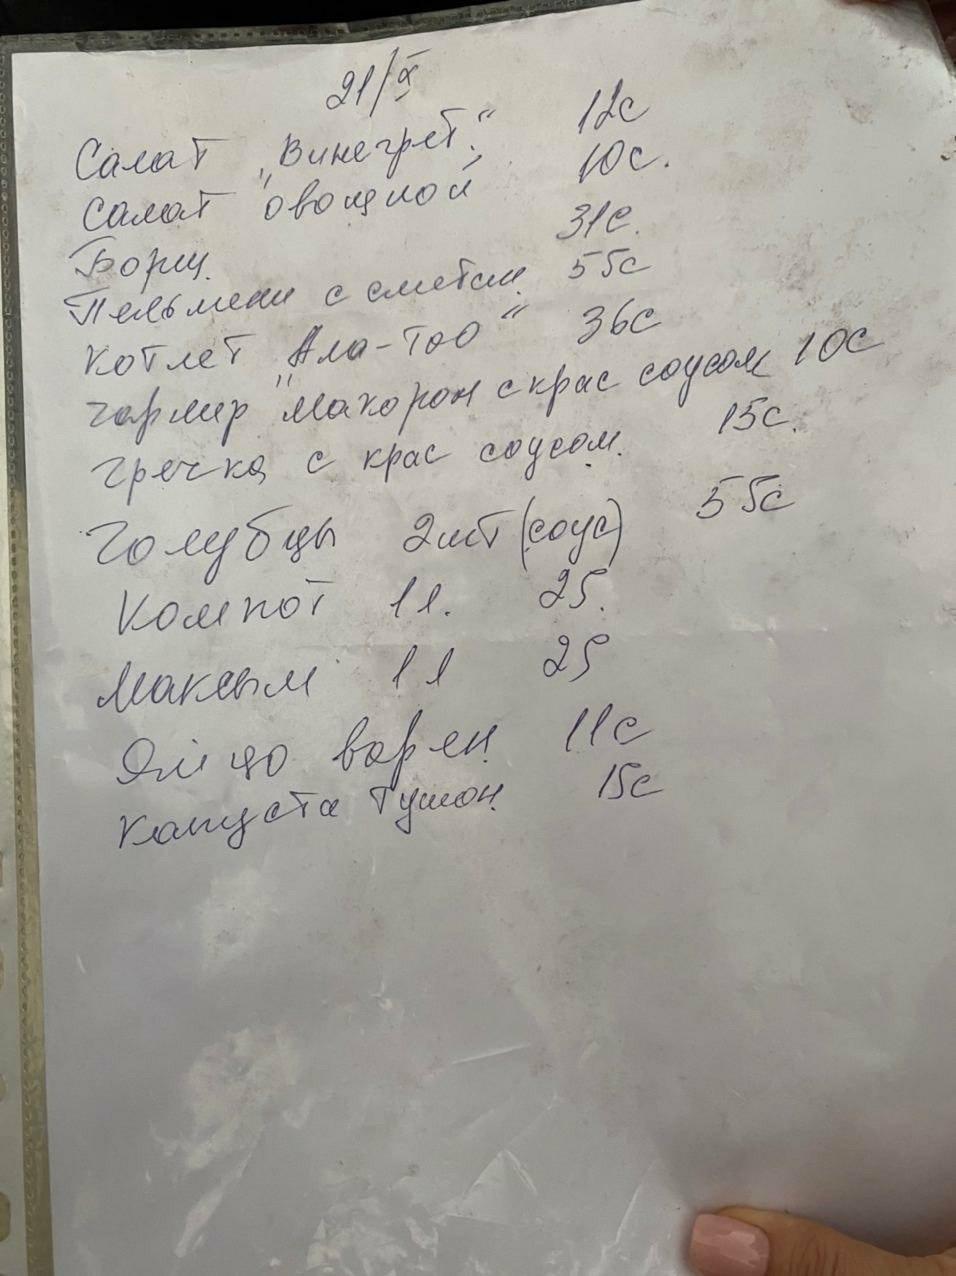 21/X
Салат „Винегрет“ 12с
Салат "овощной 10с.
Борщ 31с.
Пельмени с сметан. 55с
Котлет "Ала-Тоо" 36с
гарнир "макорон с крас соусом 10с
гречка с крас соусом. 15с.
Голубцы 2шт (соус) 55с
Компот 1л. 25.
Максым 1л 25
Яйцо варен 11с
Капуста тушон. 15с